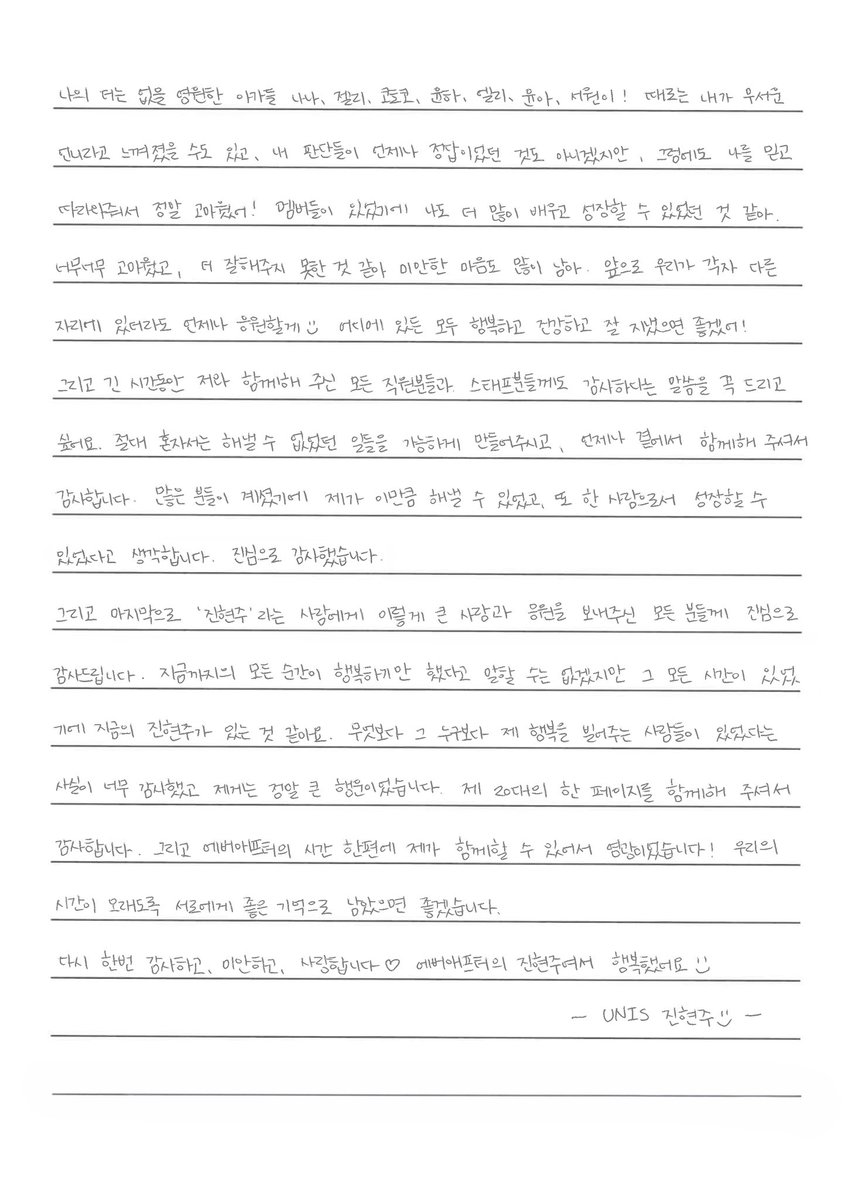 나의 더는 없을 영원한 아가들 나나, 젤리, 코토코, 윤하, 엘리, 윤아, 서원이! 때로는 내가 무서운
언니라고 느껴졌을 수도 있고, 내 판단들이 언제나 정답이었던 것도 아니겠지만, 그럼에도 나를 믿고
따라와줘서 정말 고마웠어! 멤버들이 있었기에 나도 더 많이 배우고 성장할 수 있었던 것 같아.
너무너무 고마웠고, 더 잘해주지 못한 것 같아 미안한 마음도 많이 남아. 앞으로 우리가 각자 다른
자리에 있더라도 언제나 응원할게 어디에 있든 모두 행복하고 건강하고 잘 지냈으면 좋겠어!
그리고 긴 시간동안 저와 함께해 주신 모든 직원분들과 스태프분들께도 감사하다는 말씀을 꼭 드리고
싶어요. 절대 혼자서는 해낼 수 없었던 일들을 가능하게 만들어주시고, 언제나 곁에서 함께해 주셔서
감사합니다. 많은 분들이 계셨기에 제가 이만큼 해낼 수 있었고, 또 한 사람으로서 성장할 수
있었다고 생각합니다. 진심으로 감사했습니다.
그리고 마지막으로 '진현주'라는 사람에게 이렇게 큰 사랑과 응원을 보내주신 모든 분들께 진심으로
감사드립니다. 지금까지의 모든 순간이 행복하기만 했다고 말할 수는 없겠지만 그 모든 시간이 있었
기에 지금의 진현주가 있는 것 같아요. 무엇보다 그 누구보다 제 행복을 빌어주는 사람들이 있었다는
사실이 너무 감사했고 제게는 정말 큰 행운이었습니다. 제 20대의 한 페이지를 함께해 주셔서
감사합니다. 그리고 에버애프터의 시간 한편에 제가 함께할 수 있어서 영광이었습니다! 우리의
시간이 오래도록 서로에게 좋은 기억으로 남았으면 좋겠습니다.
다시 한번 감사하고, 미안하고, 사랑합니다♡ 에버애프터의 진현주여서 행복했어요
- UNIS 진현주 -